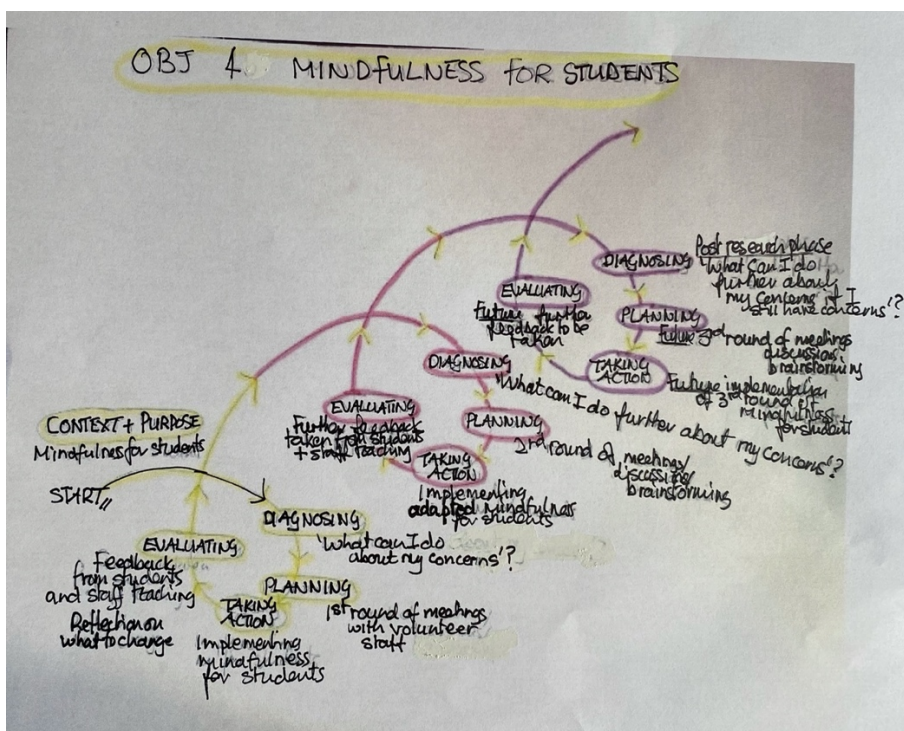 OBJ 4 MINDFULNESS FOR STUDENTS
CONTEXT + PURPOSE
Mindfulness for students
START
DIAGNOSING
'What can I do
about my concerns'?
PLANNING
1st round of meetings
with volunteer
staff
TAKING
ACTION
Implementing
mindfulness
for students
EVALUATING
Feedback
from students
and staff teaching
Reflection on
what to change
DIAGNOSING
'What can I do further about my concerns'?
PLANNING
2nd round of meetings/
discussion/
brainstorming
TAKING
ACTION
Implementing
adapted mindfulness
for students
EVALUATING
Further feedback
taken from students
+ staff teaching
DIAGNOSING
Post research phase
'What can I do
further about
my concerns if I
still have concerns'?
PLANNING
Future 3rd round of meetings
discussion
brainstorming
TAKING
ACTION
Future implementation
of 3rd round of
mindfulness
for student
EVALUATING
Future further
feedback to be
taken